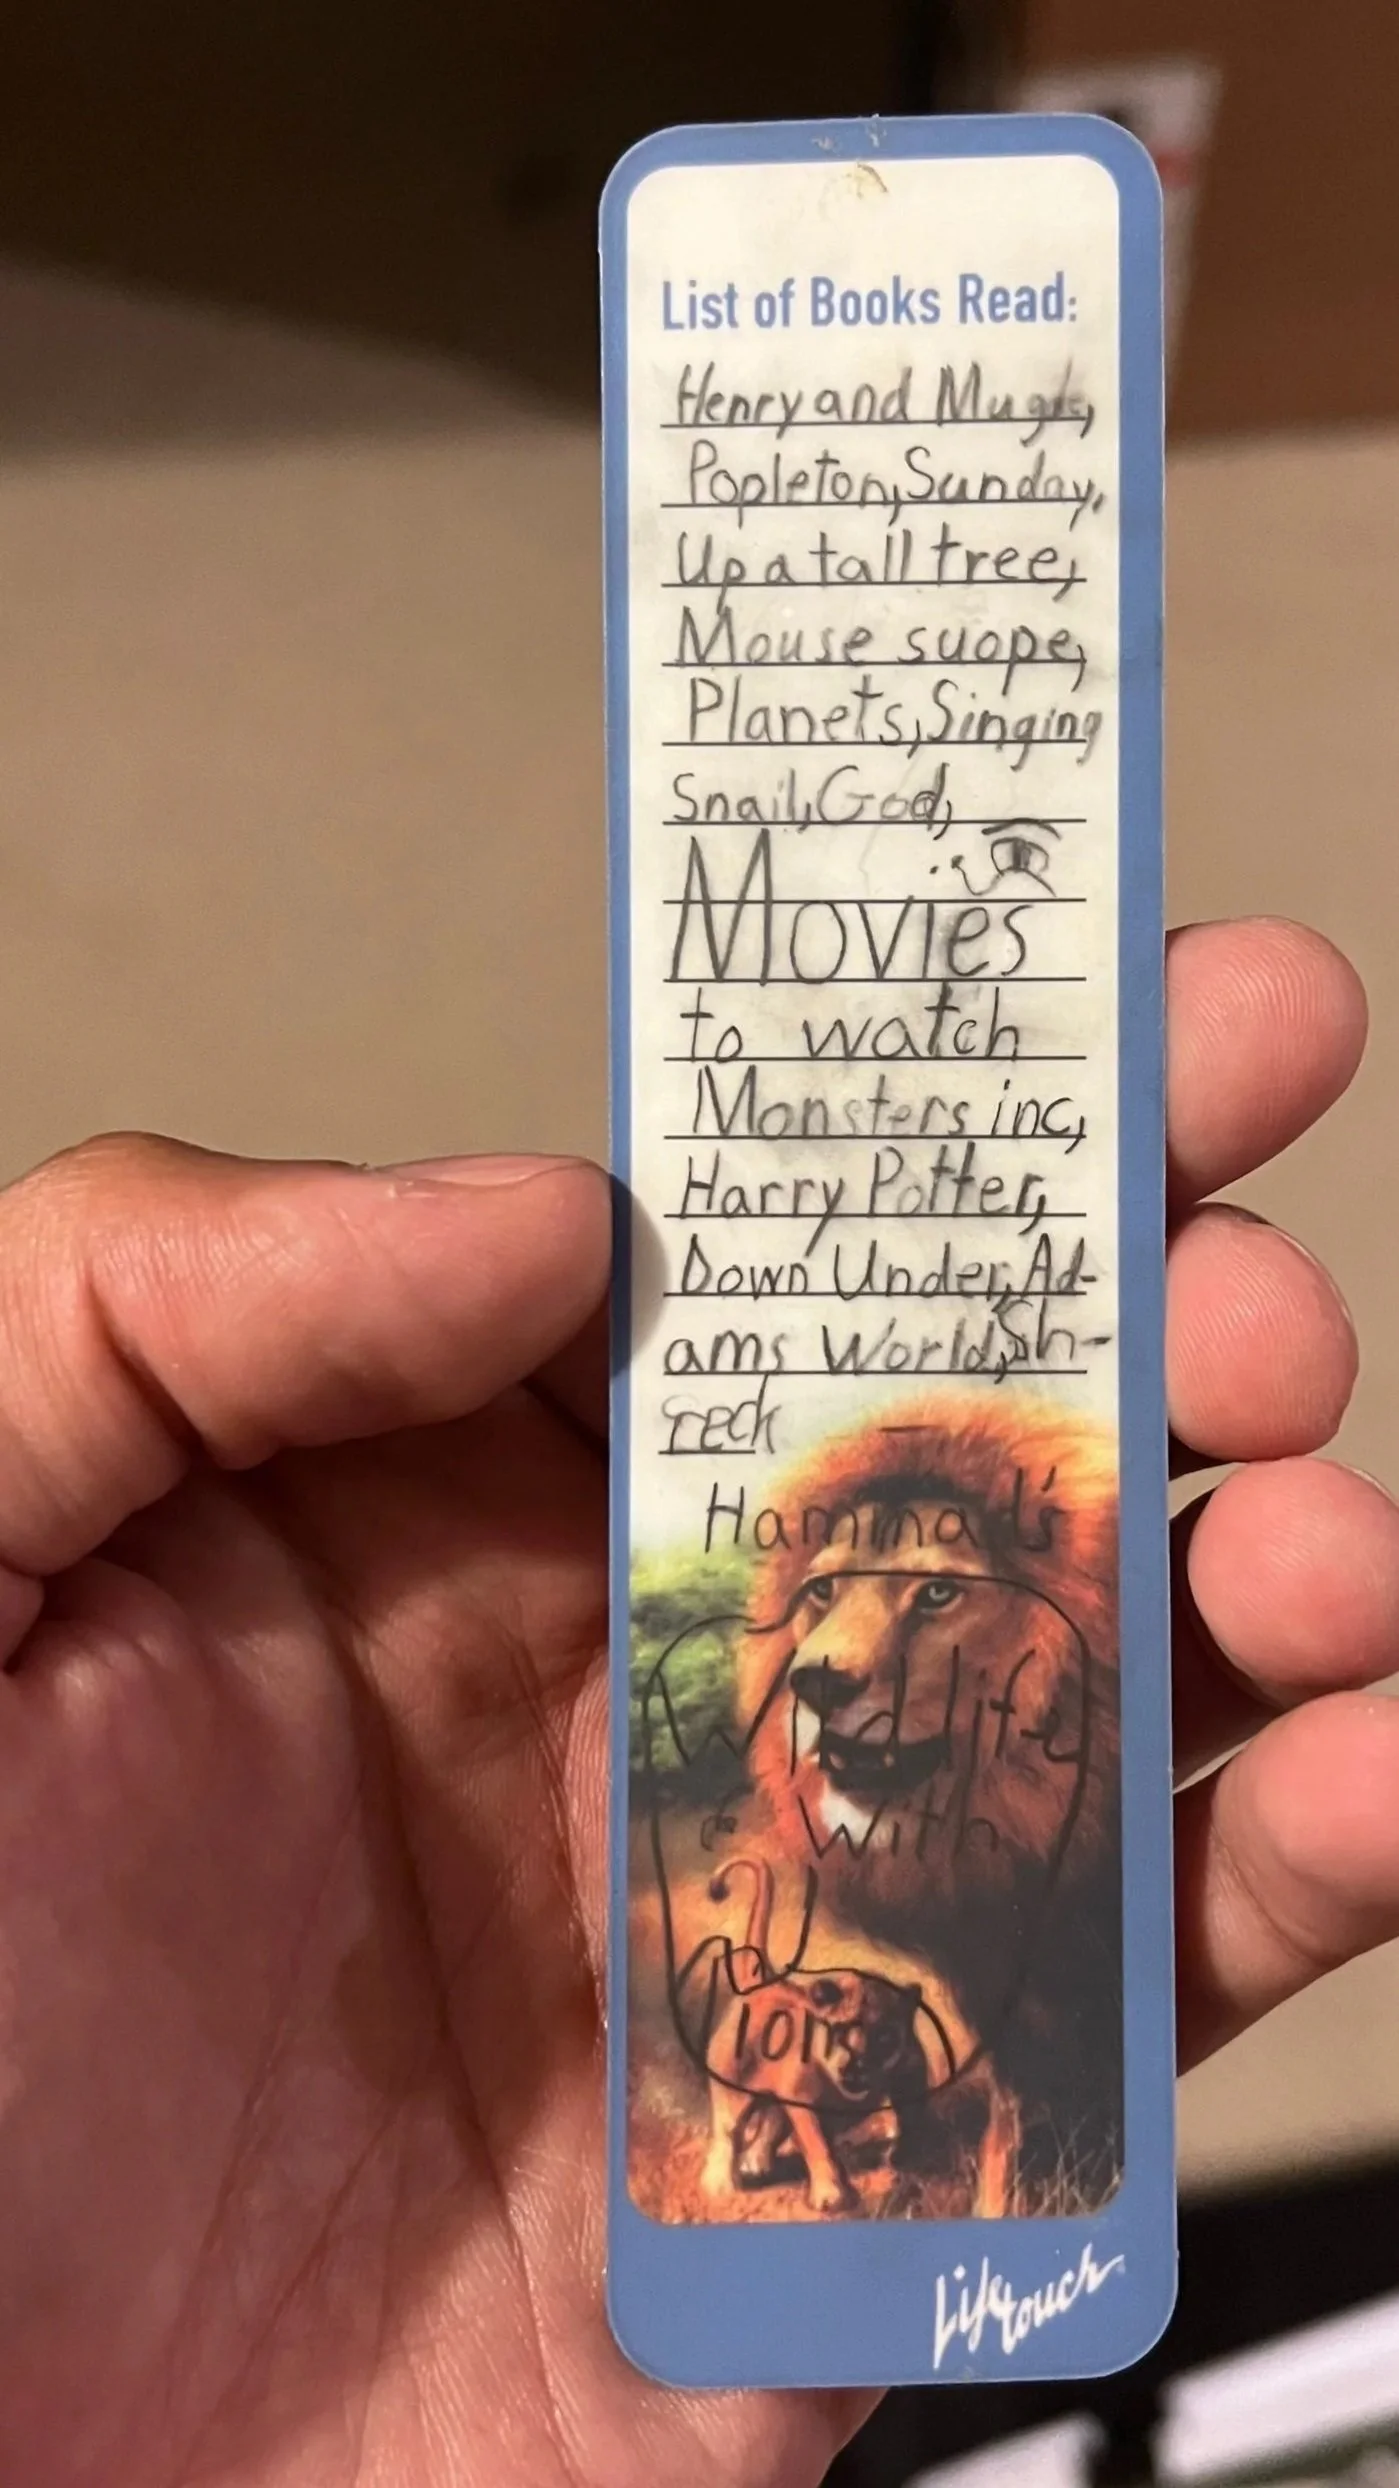 List of Books Read:
Henry and Mugde,
Popleton, Sunday,
Up a tall tree,
Mouse suope,
Planets, Singing
Snail, God,
Movies
to watch
Monsters inc,
Harry Potter,
Down Under, Ad-
ams World, Sh-
reck
Hammal's
Wild life
with
Lifetouch